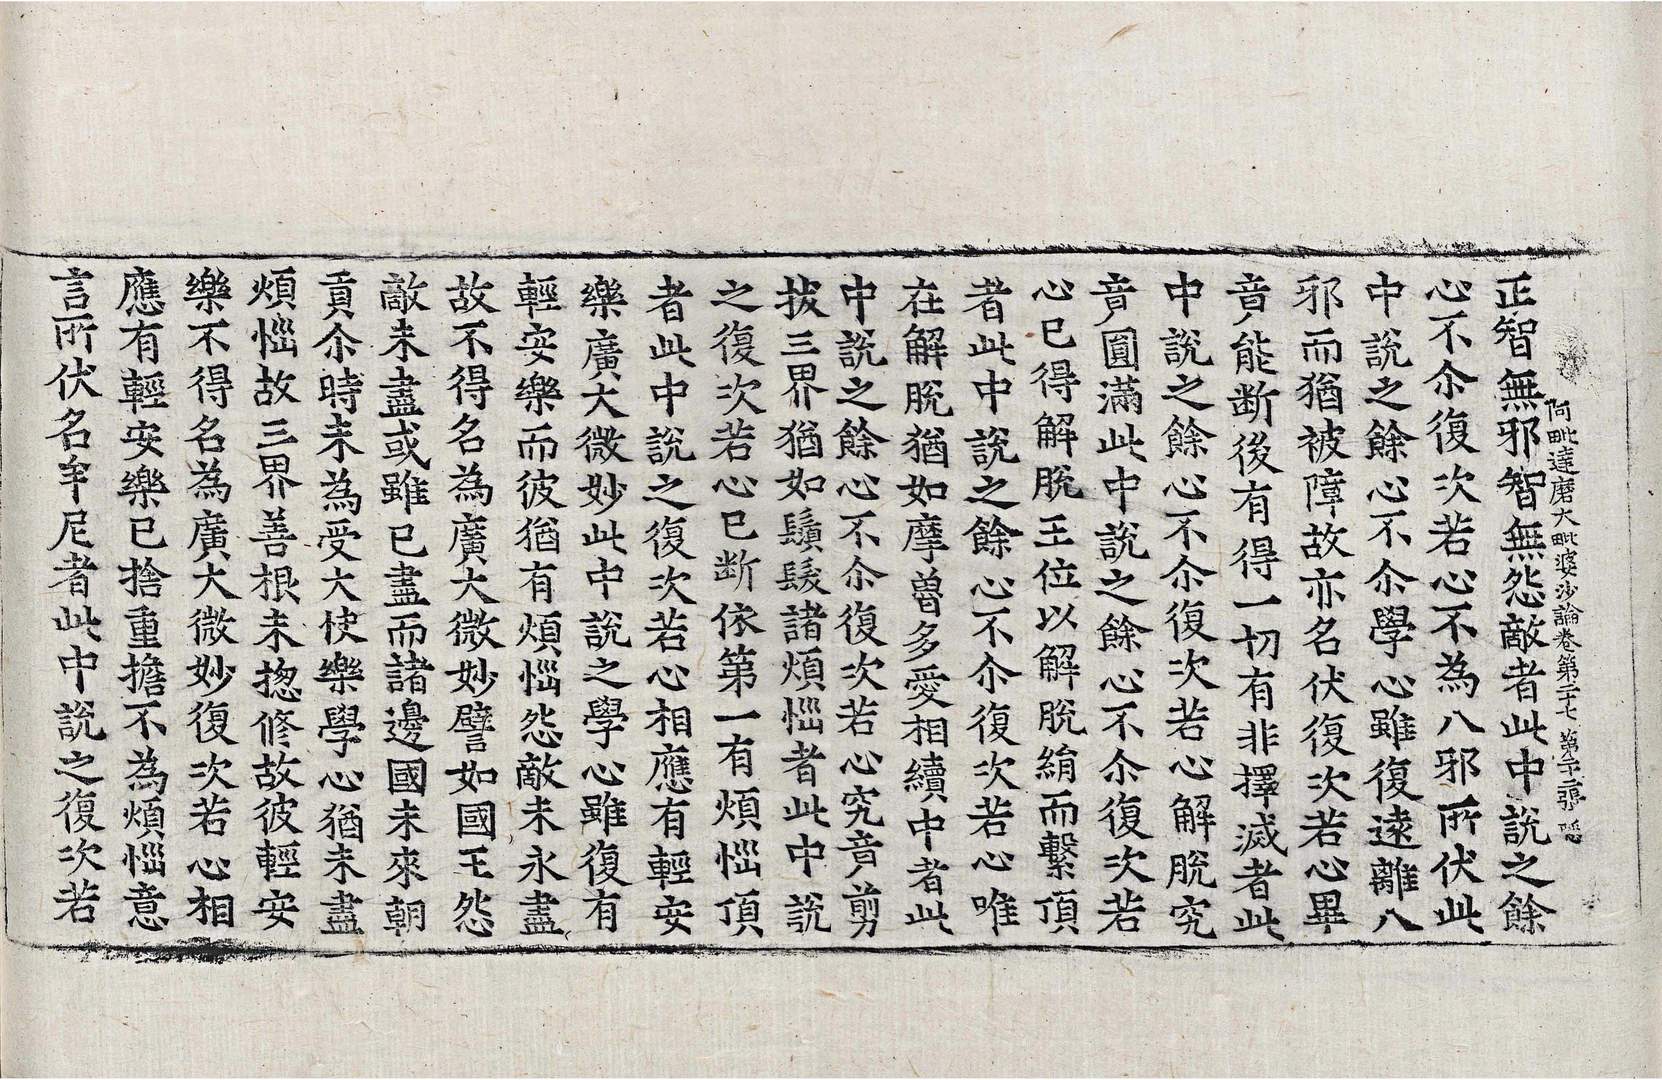 阿毗達磨大毗婆沙論卷第二十七 第二十二張 隱
正智無邪智無怨敵者此中說之餘
心不尒復次若心不為八邪所伏此
中說之餘心不尒學心雖復遠離八
邪而猶被障故亦名伏復次若心畢
竟能斷後有得一切有非擇滅者此
中說之餘心不尒復次若心解脫究
竟圓滿此中說之餘心不尒復次若
心已得解脫王位以解脫絹而繫頂
者此中說之餘心不尒復次若心唯
在解脫猶如摩魯多愛相續中者此
中說之餘心不尒復次若心究竟剪
拔三界猶如鬚髮諸煩惱者此中說
之復次若心已斷依第一有煩惱頂
者此中說之復次若心相應有輕安
樂廣大微妙此中說之學心雖復有
輕安樂而彼猶有煩惱怨敵未永盡
故不得名為廣大微妙譬如國王怨
敵未盡或雖已盡而諸邊國未來朝
貢尒時未為受大快樂學心猶未盡
煩惱故三界善根未揔修故彼輕安
樂不得名為廣大微妙復次若心相
應有輕安樂已捨重擔不為煩惱意
言所伏名牟尼者此中說之復次若